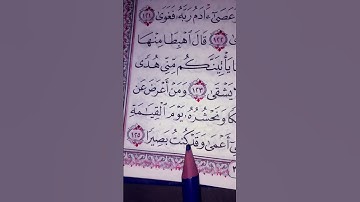 عَصَىٰٓ ءَادَمُ رَبَّهُۥ فَغَوَىٰ ١٢١
١٢٢ قَالَ ٱهْبِطَا مِنْهَا
يَأْتِيَنَّكُم مِّنِّى هُدًى
يَشْقَىٰ ١٢٣ وَمَنْ أَعْرَضَ عَن
وَنَحْشُرُهُۥ يَوْمَ ٱلْقِيَٰمَةِ
أَعْمَىٰ وَقَدْ كُنتُ بَصِيرًا ١٢٥